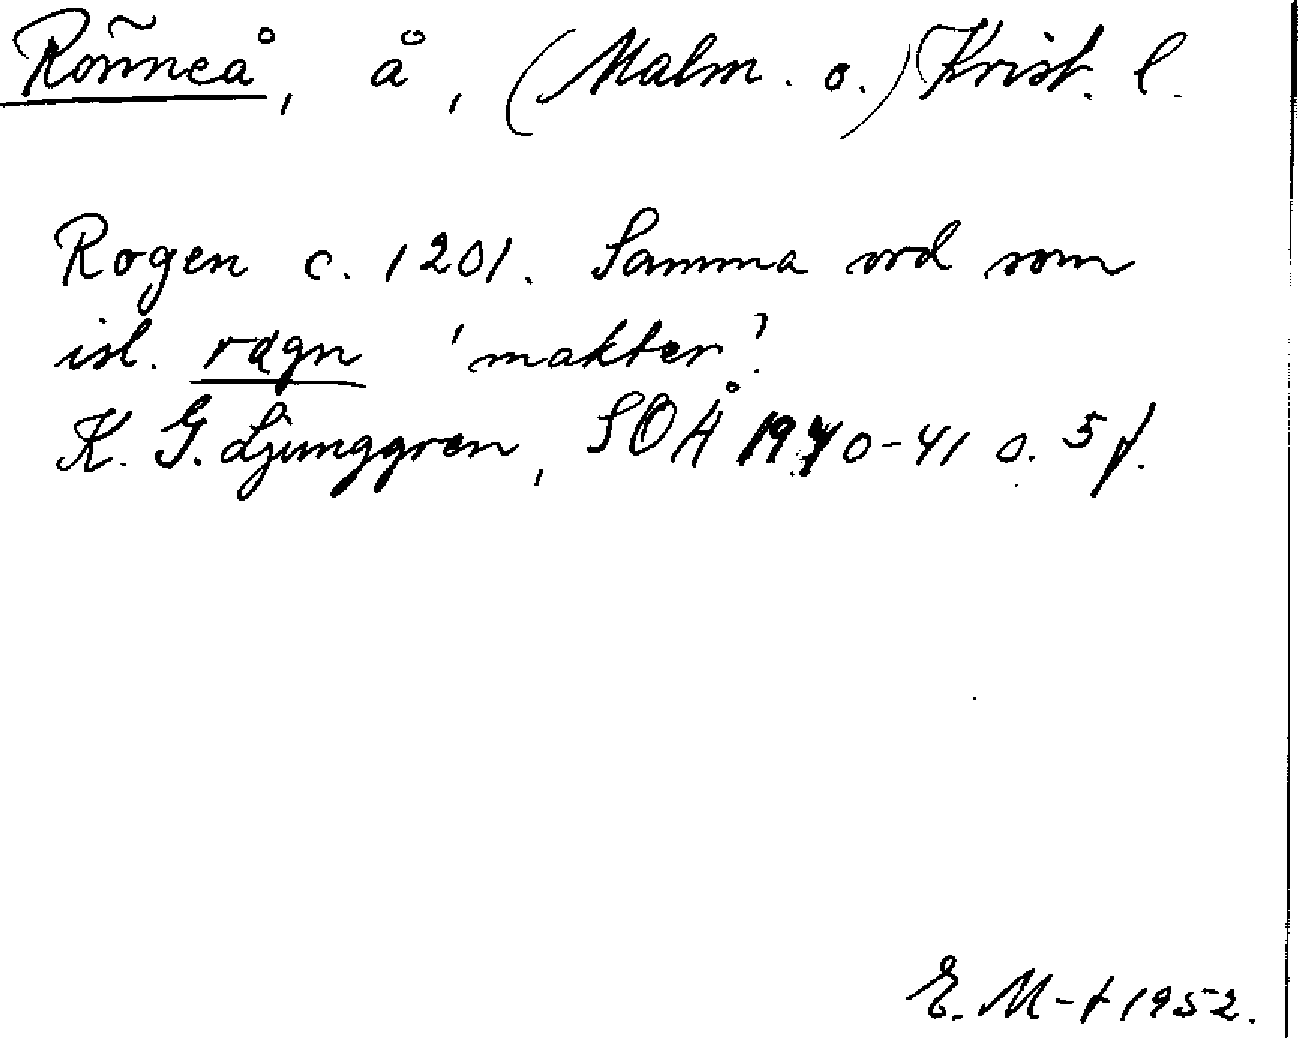 Rönneå, å, (Malm. o.) Krist. l.
Rogen c. 1201. Samma ord som
isl. ragn 'makter'.
K. G. Ljunggren, SOÅ 1940-41 s. 5 f.
E. M-t 1952.